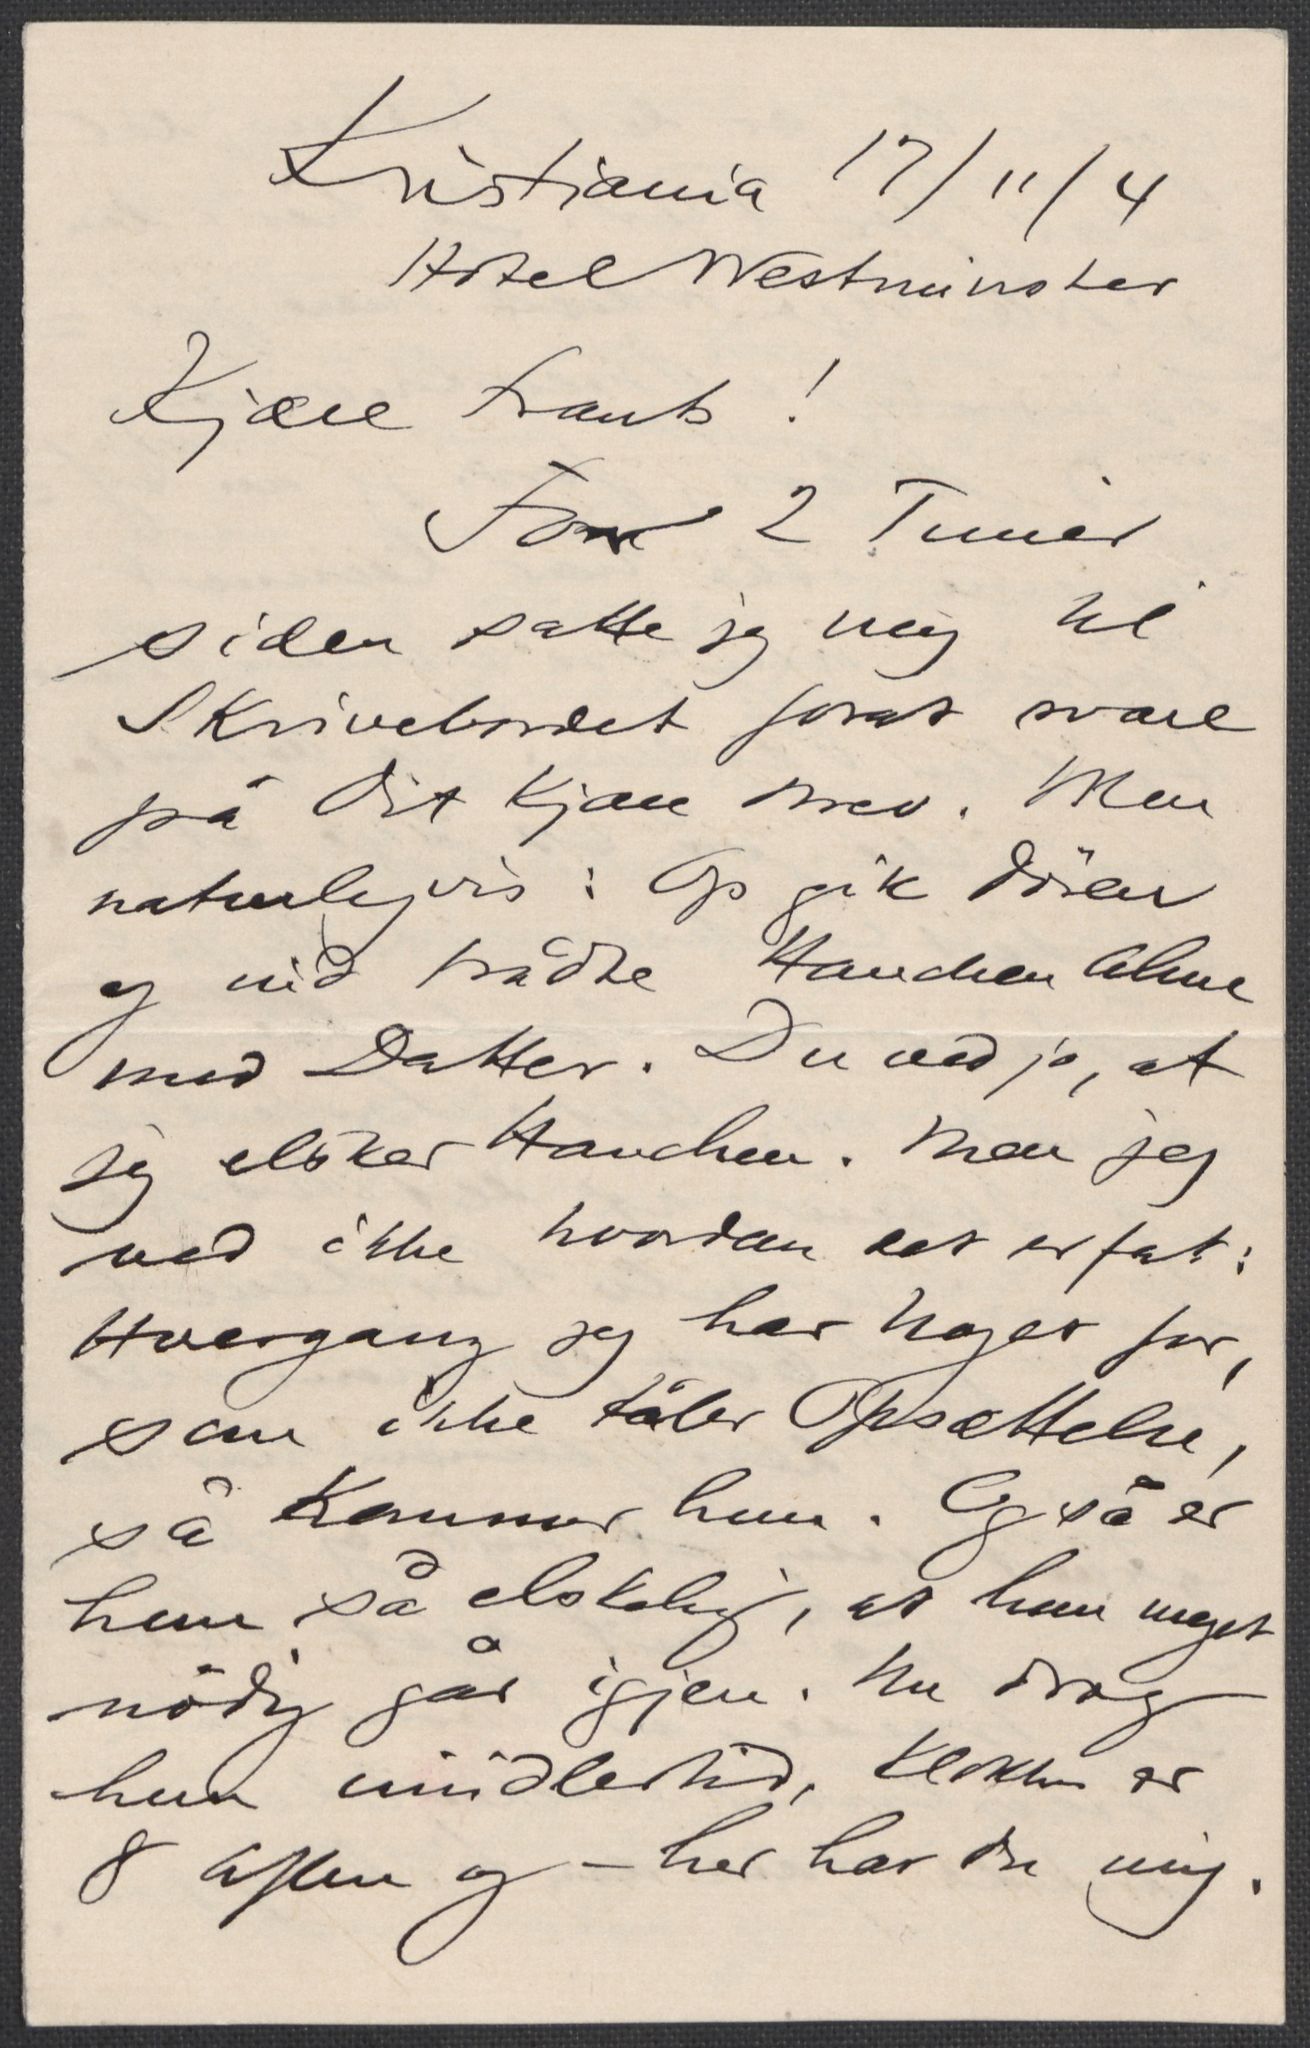 Kristiania 17/11/4
Hotel Westminster
Kjære Frants!
For 2 Timer
siden satte jeg mig til
Skrivebordet forat svare
på Dit kjære Brev. Men
naturligvis: Op gik Døren
og ind trådte Hanchen Alme
med Datter. Du ved jo, at
jeg elsker Hanchen. Men jeg
ved ikke hvordan det er fat:
Hvergang jeg har Noget for,
som ikke tåler Opsættelse,
så kommer hun. Og så er
hun så elskelig, at hun meget
nödig går igjen. Nu drog
hun imidlertid, Klokken er
8 Aften og – her har Du mig.